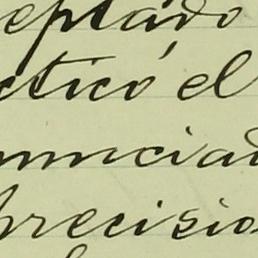 eptado
cticó el
nunciad
precisio